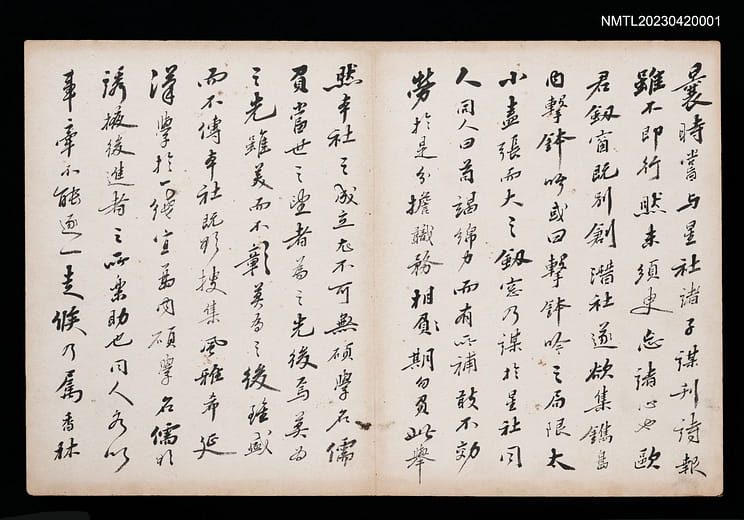 NMTL20230420001
曩時嘗与星社諸子謀刊詩報
雖不即行然未須臾忘諸心也歐
君劔窗既別創潛社遂欲集鐫舊
日擊鉢吟或曰擊鉢吟之局限太
小盍張而大之劔窓乃謀於星社同
人同人曰苟竭綿力而有所補敢不効
勞於是分擔職務相與期勿負此舉
然本社之成立尤不可無碩學名儒
負當世之望者為之先後焉莫為
之先雖美而不彰莫為之後雖盛
而不傳本社既形搜集風雅希延
漢學於一綫宜為內碩學名儒所
誘掖後進者之所樂助也同人各以
事牽不能逐一走候乃屬香秌